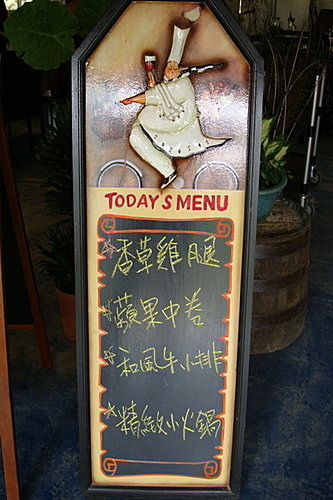 TODAY'S MENU
*香草雞腿
*蘋果中卷
*和風牛小排
*精緻小火鍋